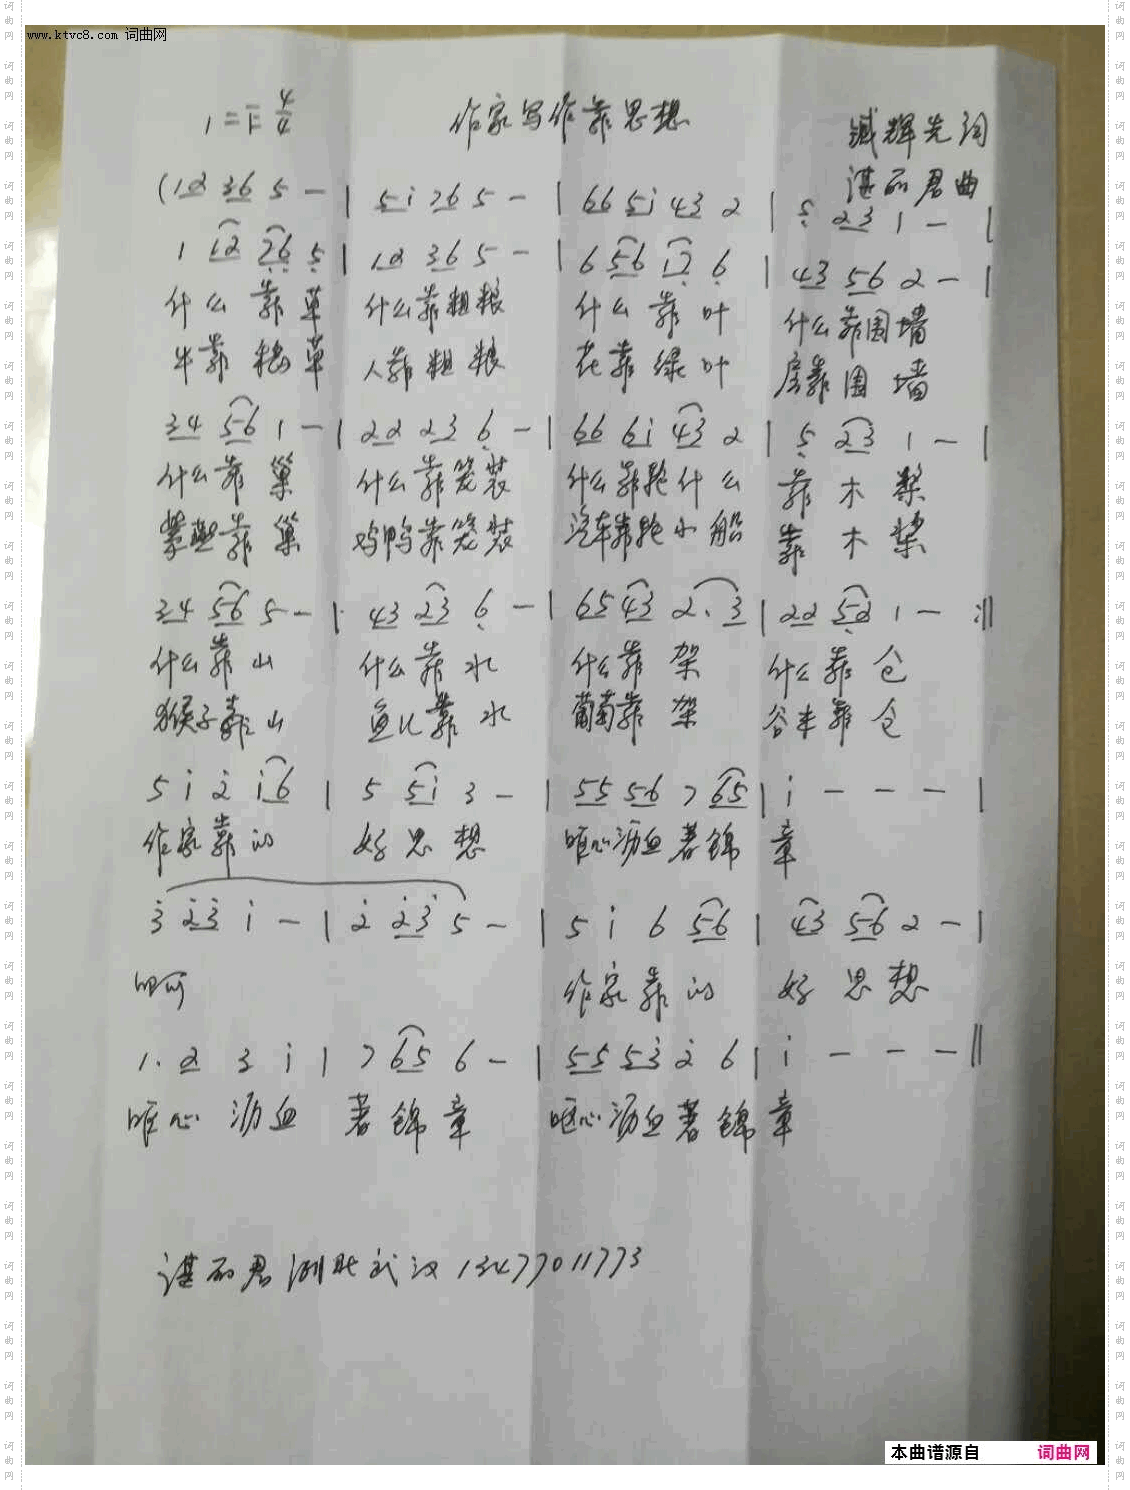 www.ktvc8.com 词曲网
1=F 4/4 作家写作靠思想 臧辉先词
谌丽君曲
(12 36 5 - | 5i 76 5 - | 66 5i 43 2 | 5 23 1 - |
1 12 76 5 | 12 36 5 - | 6 56 12 6 | 43 56 2 - |
什么靠草 什么靠粗粮 什么靠叶 什么靠围墙
牛靠粮草 人靠粗粮 花靠绿叶 房靠围墙
34 56 1 - | 22 23 6 - | 66 6i 43 2 | 5 23 1 - |
什么靠巢 什么靠笼装 什么靠轮什么 靠木桨
紫燕靠巢 鸡鸭靠笼装 汽车靠轮小船 靠木桨
34 56 5 - | 43 23 6 - | 65 43 2. 3 | 22 52 1 - :||
什么靠山 什么靠水 什么靠架 什么靠仓
猴子靠山 鱼儿靠水 葡萄靠架 谷丰靠仓
5 i 2 i6 | 5 5i 3 - | 55 56 7 65 | i - - - |
作家靠的 好思想 呕心沥血著锦章
3 23 i - | 2 23 5 - | 5 i 6 56 | 43 56 2 - |
啊 作家靠的 好思想
1. 2 3 i | 7 65 6 - | 55 53 2 6 | i - - - ||
呕心沥血 著锦章 呕心沥血著锦章
谌丽君 湖北武汉 13477011773
本曲谱源自 词曲网